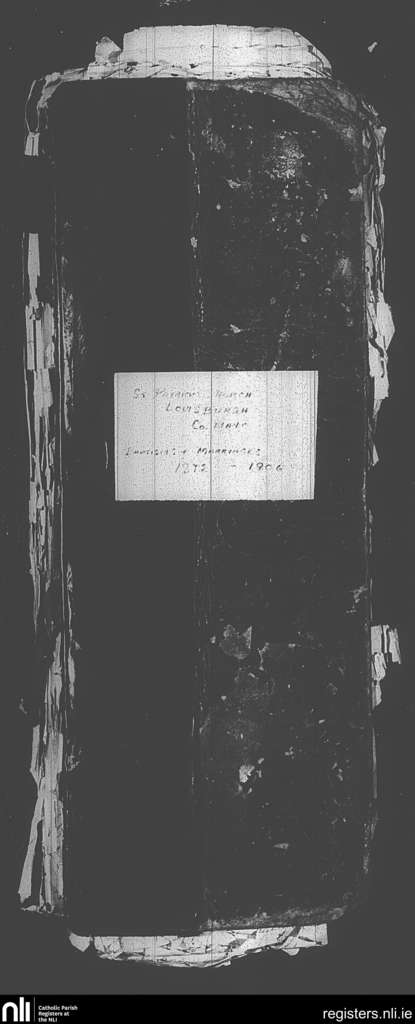 St Patrick's Church
Louisburgh
Co. Mayo
Baptisms & Marriages
1872 - 1906
nli
Catholic Parish
Registers at
the NLI
registers.nli.ie